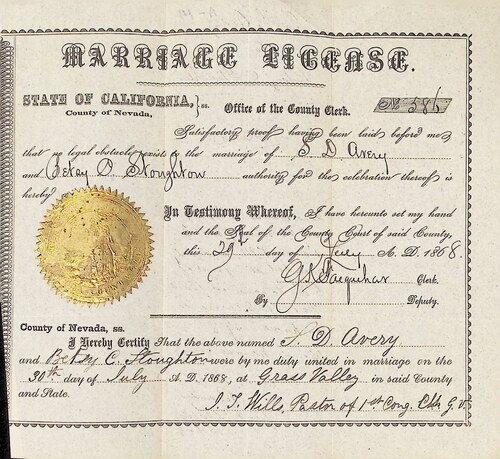 MARRIAGE LICENSE.
STATE OF CALIFORNIA, } ss. Office of the County Clerk. No 586
County of Nevada,
Satisfactory proof having been laid before me
that no legal obstacle exists to the marriage of S D Avery
and O Stoughton authority for the celebration thereof is
hereby
In Testimony Whereof, I have hereunto set my hand
and the Seal of the County Court of said County,
this 29th day of July A. D. 1868.
Farquhar Clerk.
By Deputy.
County of Nevada, ss.
I Hereby Certify That the above named S. D. Avery
and Betsy C. Stoughton were by me duly united in marriage on the
30th day of July A. D. 1868, at Grass Valley in said County
and State.
J. T. Wills, Pastor of 1st Cong. Chh G. V.